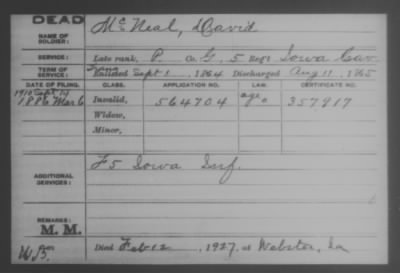 DEAD
NAME OF SOLDIER: McNeal, David
SERVICE: Late rank, P. Co. G, 5 Reg't Iowa Cav.
TERM OF SERVICE: Trans Enlisted Sept 1, 1864 Discharged Aug 11, 1865
DATE OF FILING. CLASS. APPLICATION NO. LAW. CERTIFICATE NO.
1910 Sept 19
1886 Mar 6 Invalid, 564704 age. 357917
Widow,
Minor,
ADDITIONAL SERVICES: F5 Iowa Inf.
REMARKS:
M. M.
Died Feb 12, 1927, at Webster, Ia